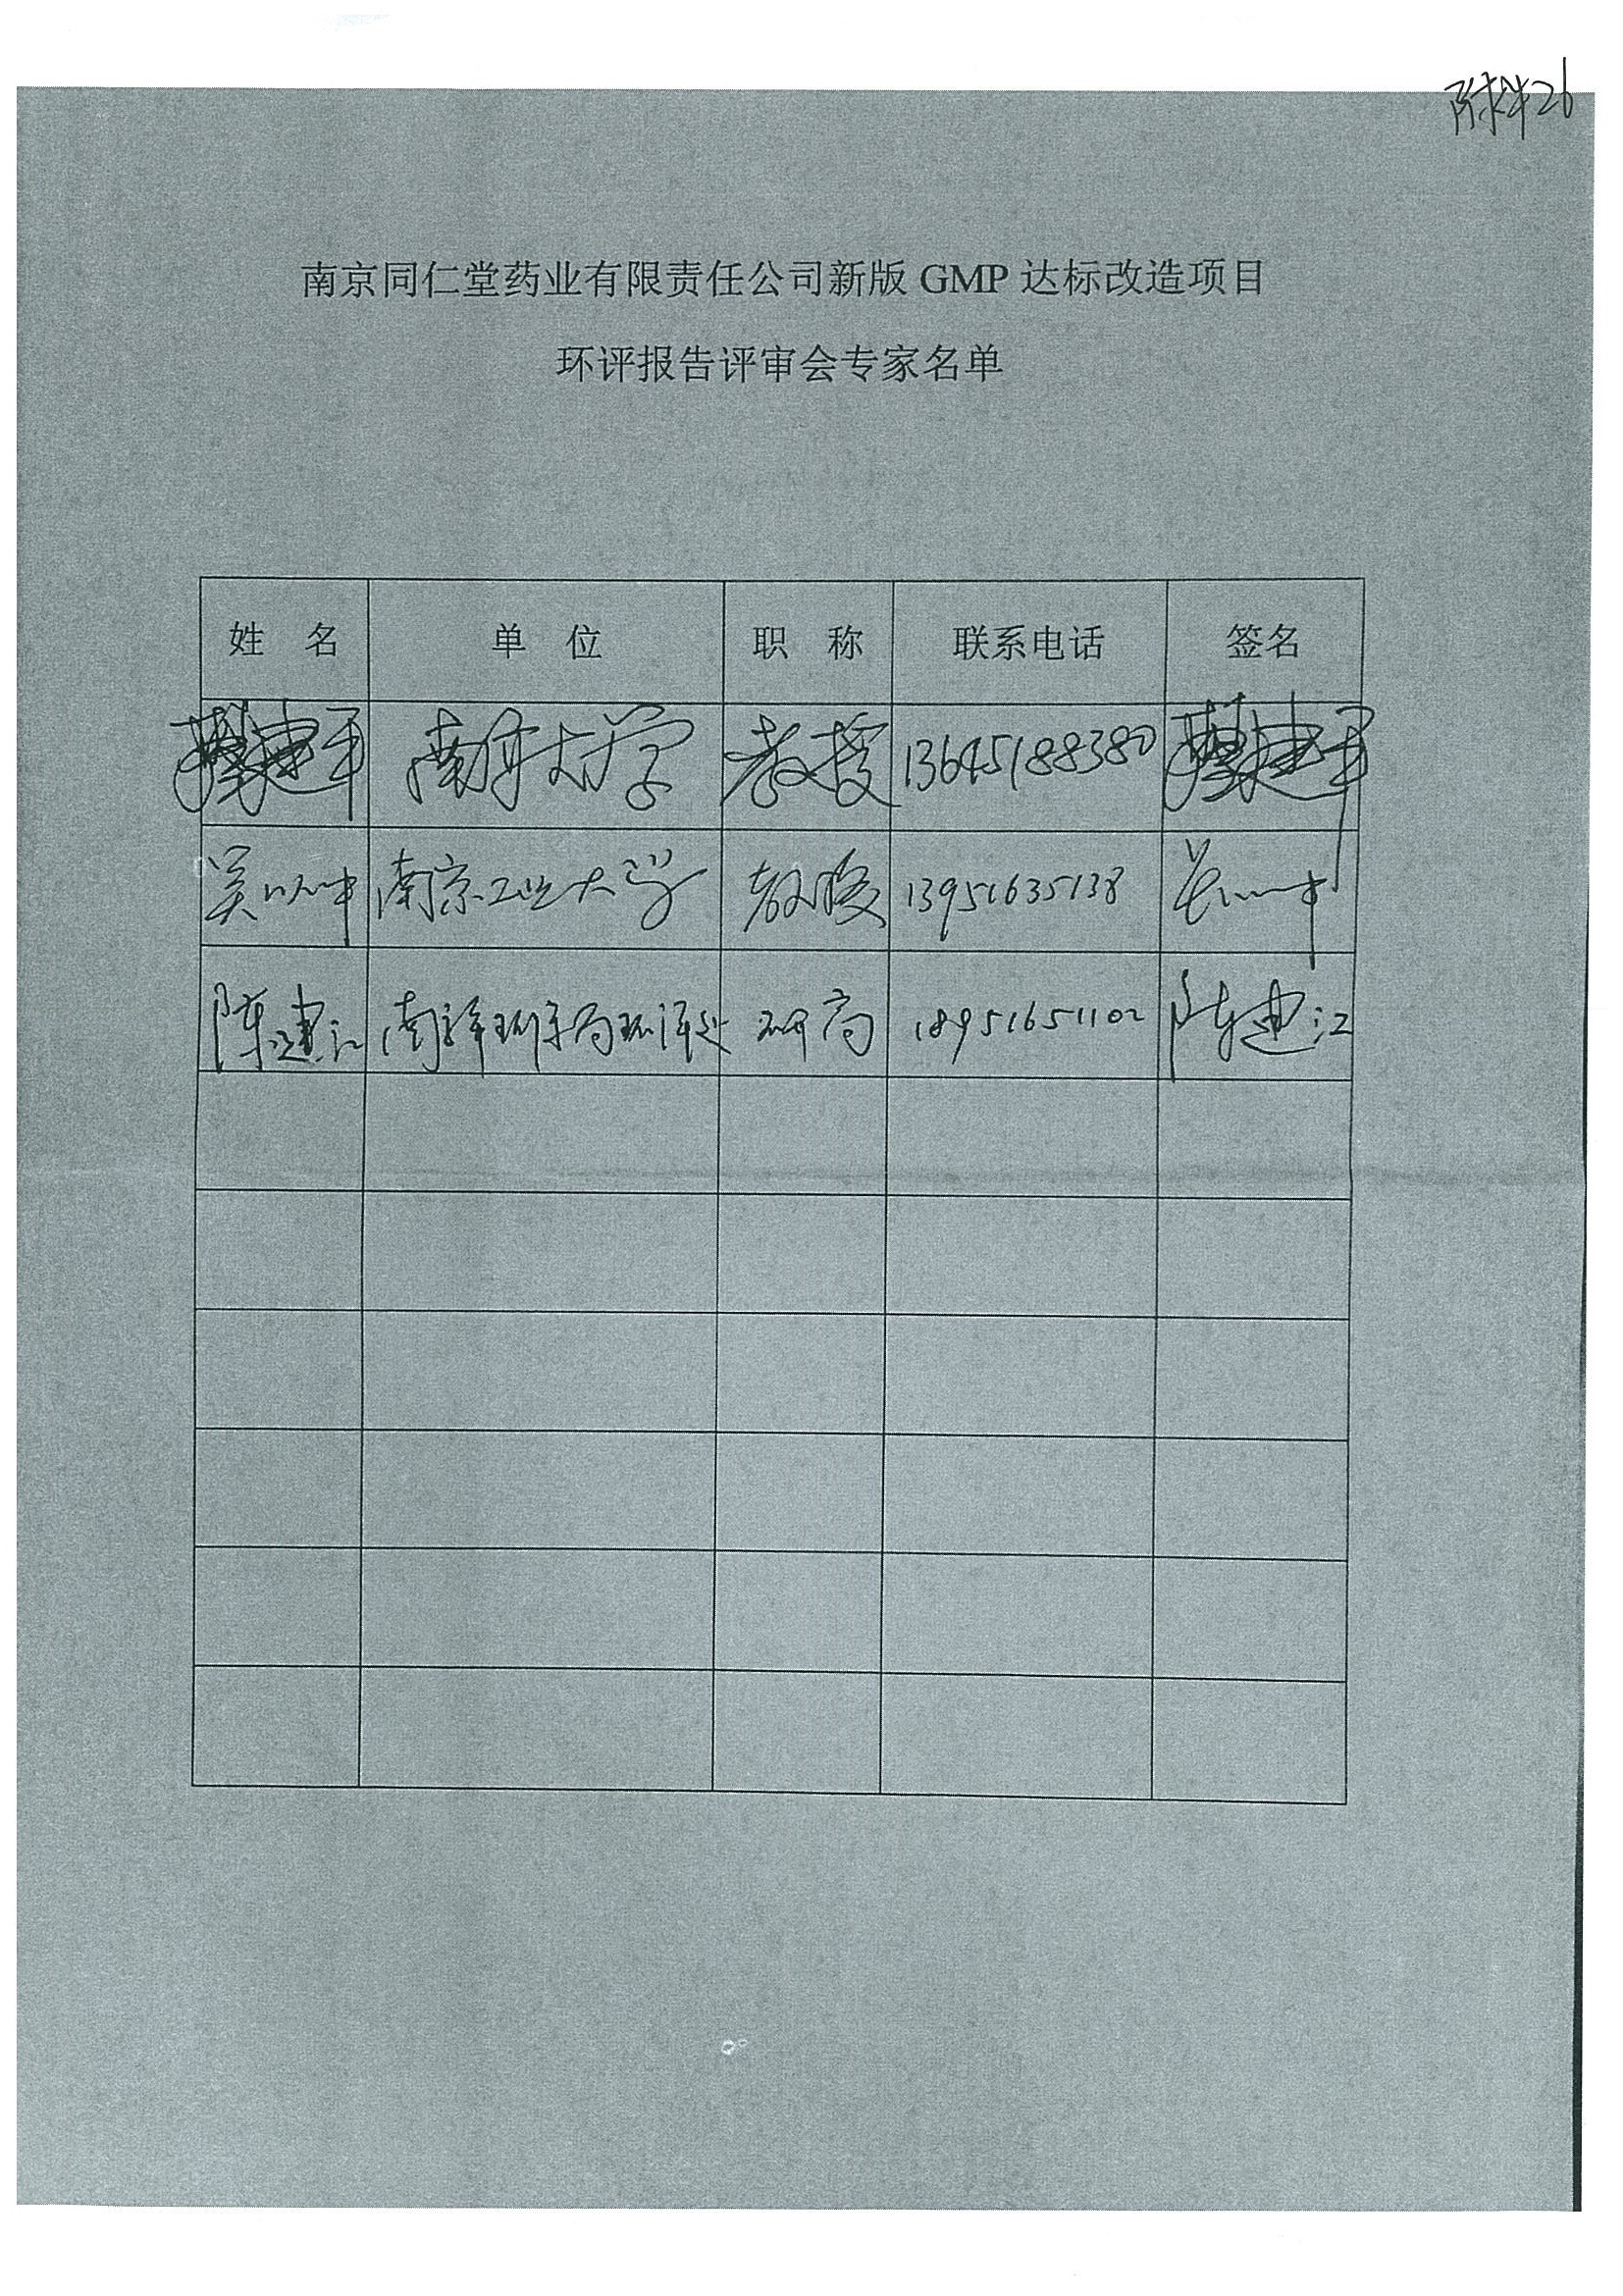 附件26
南京同仁堂药业有限责任公司新版 GMP 达标改造项目
环评报告评审会专家名单
姓 名 单 位 职 称 联系电话 签名
建军 南京大学 教授 13645188380 建军
吴 中 南京工业大学 教授 13951635138 吴 中
陈建江 南京 环评处 研高 18951651102 陈建江